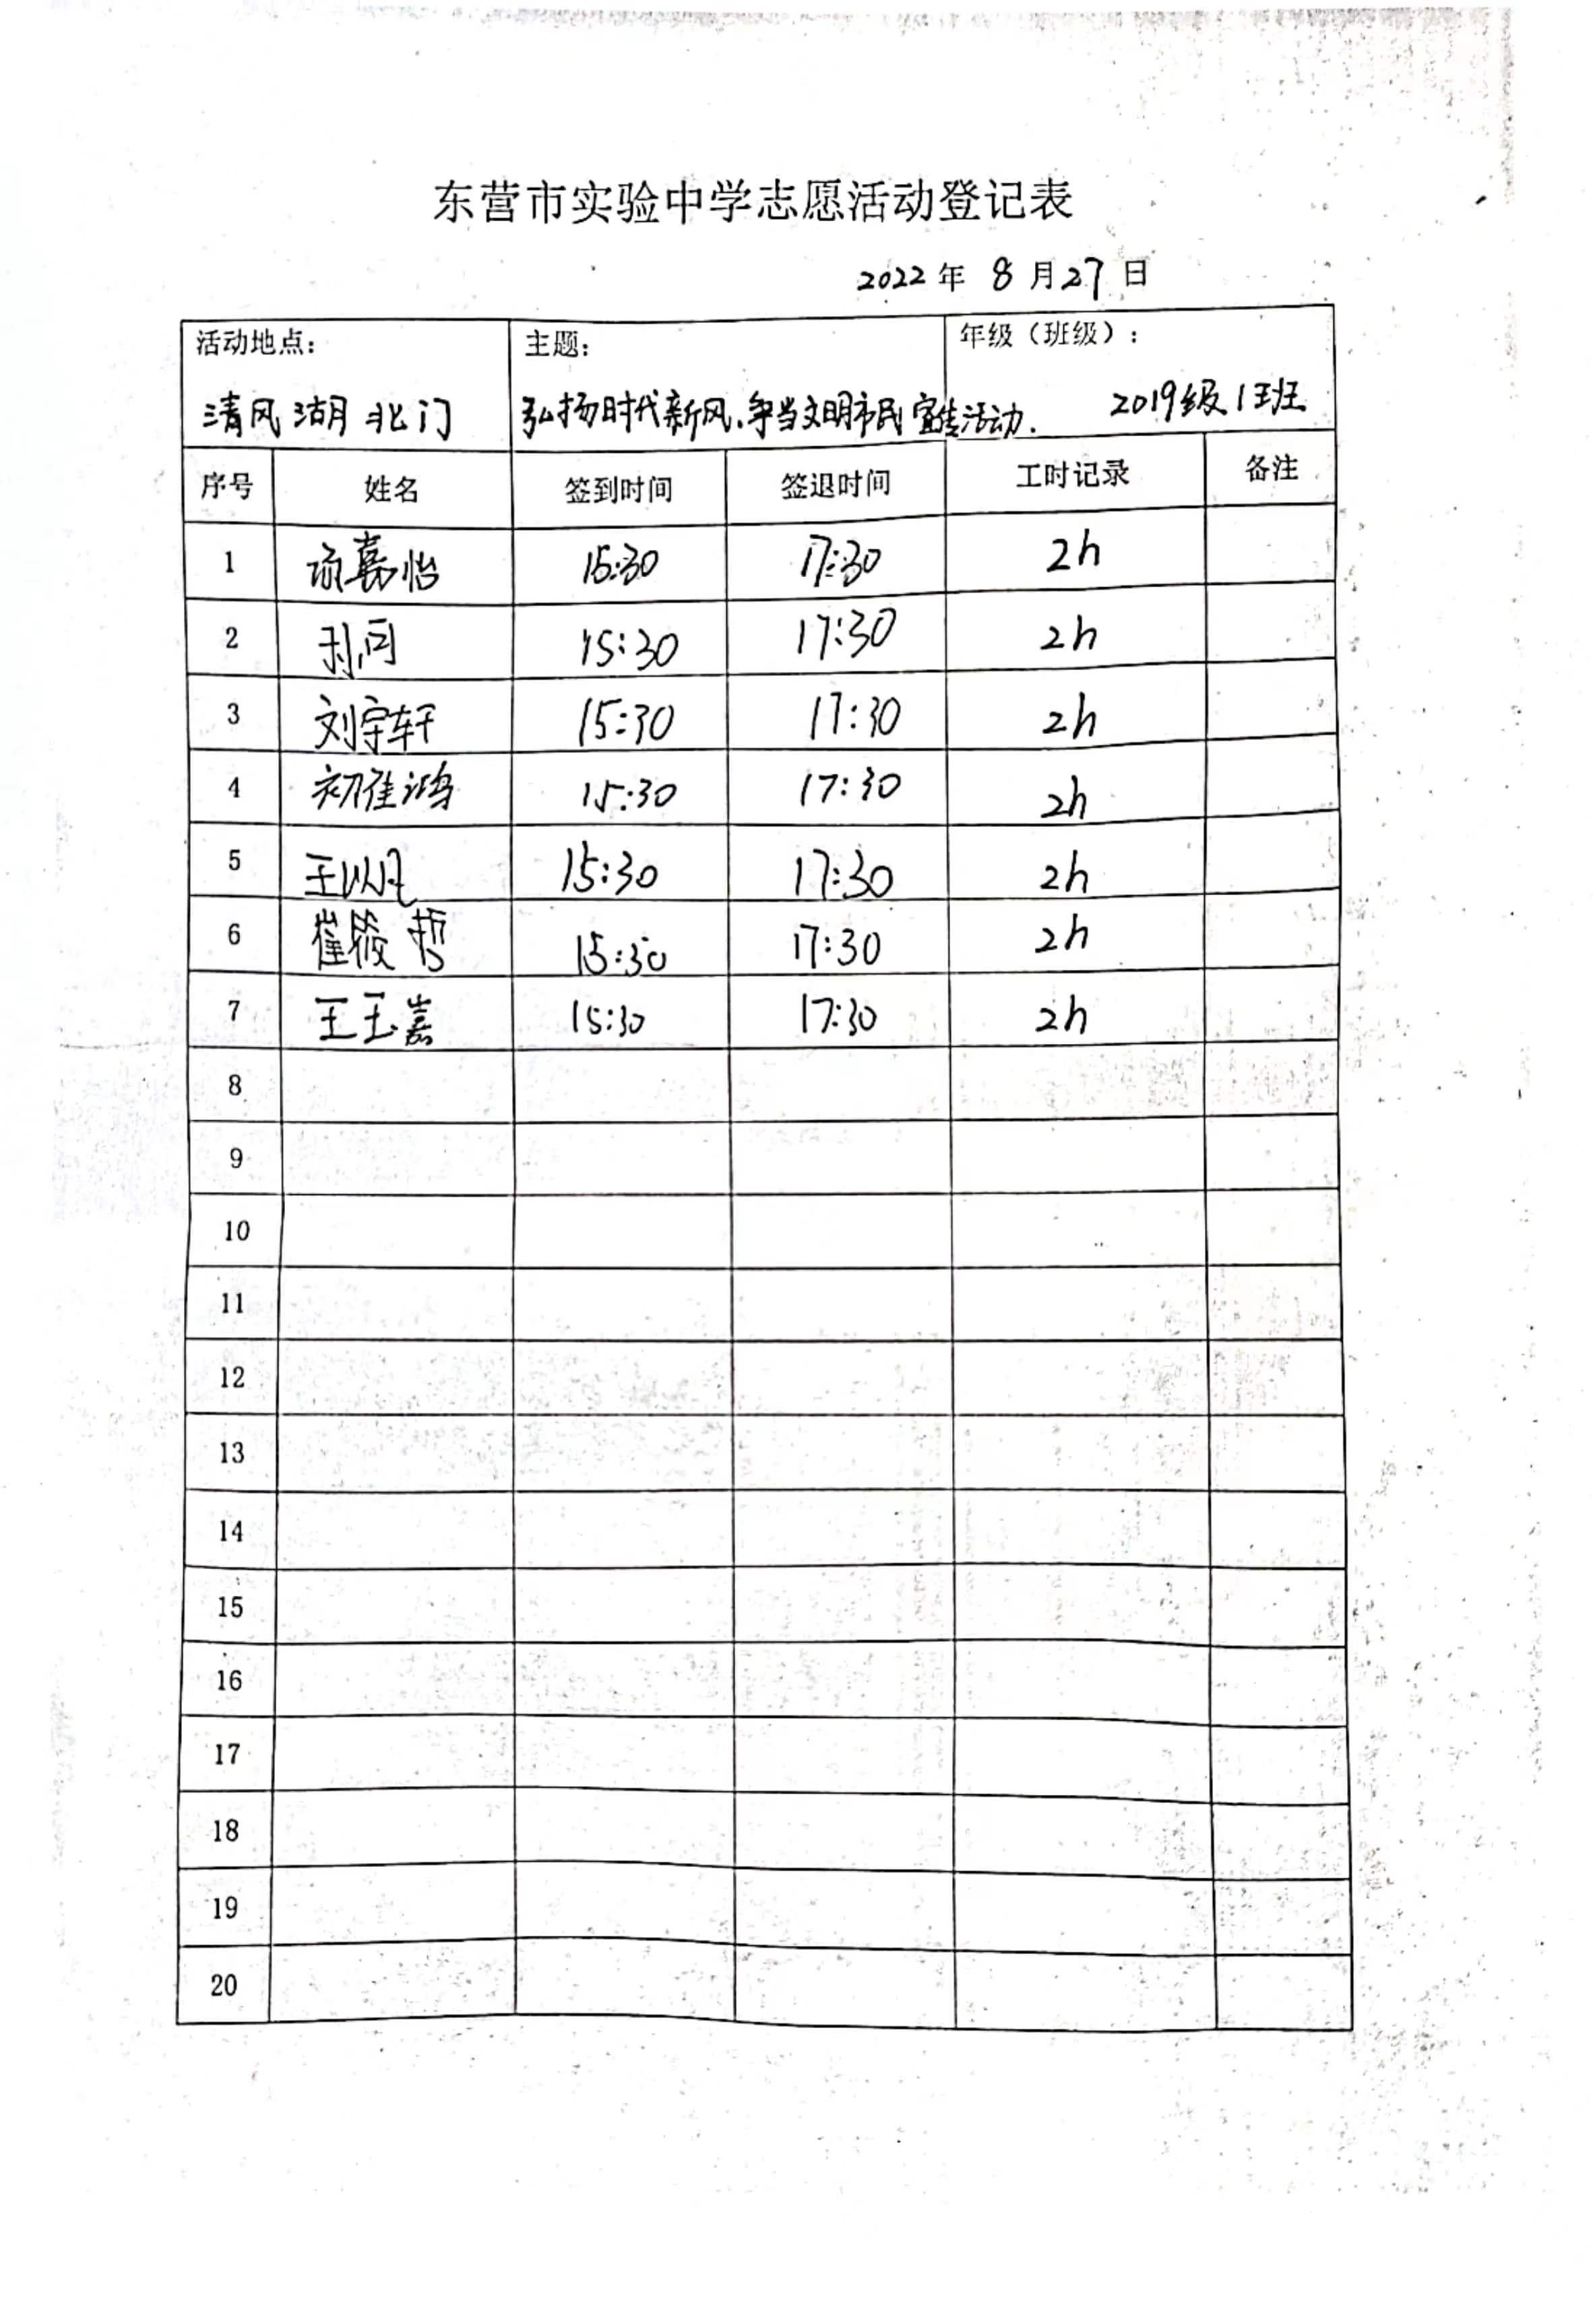 东营市实验中学志愿活动登记表
2022 年 8 月 27 日
活动地点： 主题： 年级（班级）：
清风湖北门 弘扬时代新风、争当文明市民宣传活动. 2019级1班
序号 姓名 签到时间 签退时间 工时记录 备注
1 嘉怡 15:30 17:30 2h
2 15:30 17:30 2h
3 刘宇轩 15:30 17:30 2h
4 初雅鸿 15:30 17:30 2h
5 王以凡 15:30 17:30 2h
6 崔筱哲 15:30 17:30 2h
7 王玉嘉 15:30 17:30 2h
8
9
10
11
12
13
14
15
16
17
18
19
20